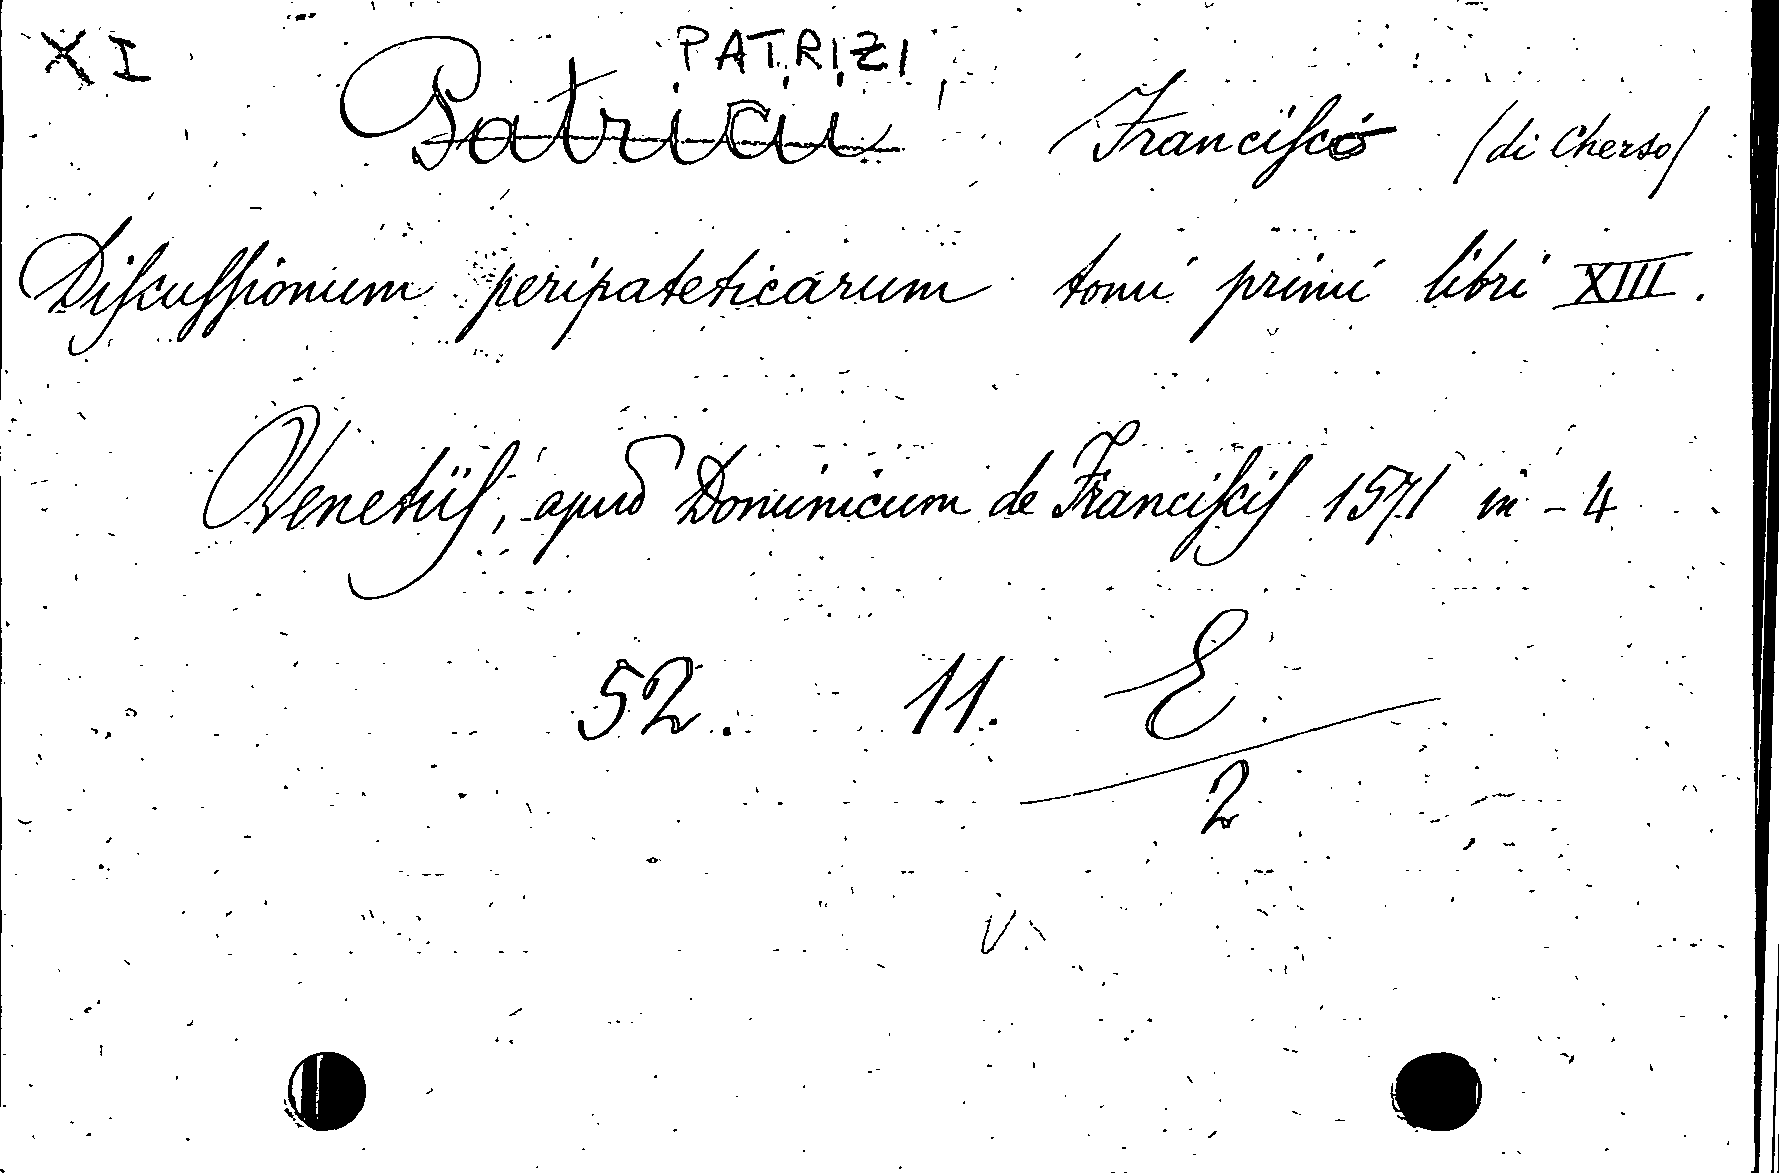 XI PATRIZI,
Patricii Francisco (di Cherso)
Discussionum peripateticarum tomi primi libri XIII.
Venetiis, apud Dominicum de Franciscis 1571 in - 4
52. 11. E
2
V.